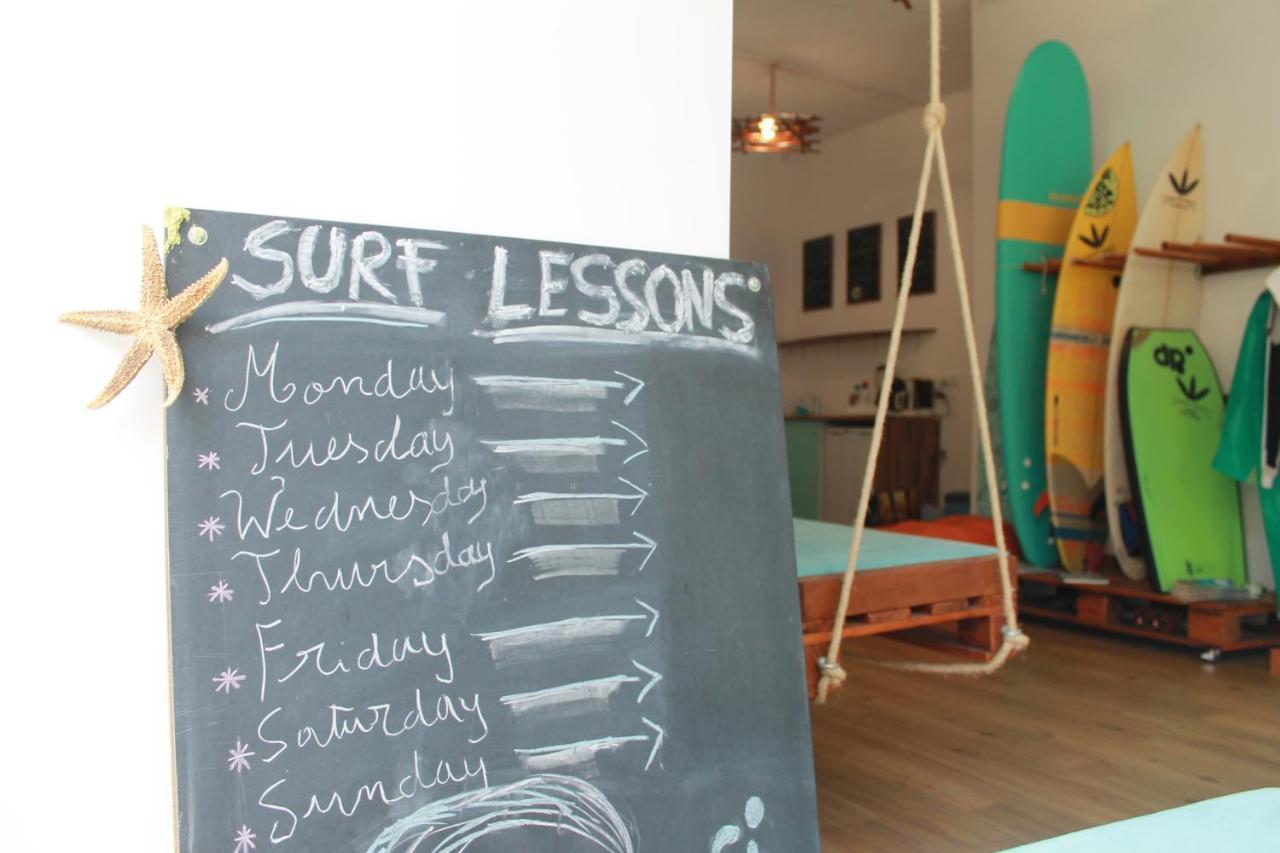 SURF LESSONS
* Monday →
* Tuesday →
* Wednesday →
* Thursday →
* Friday →
* Saturday →
* Sunday →
dR